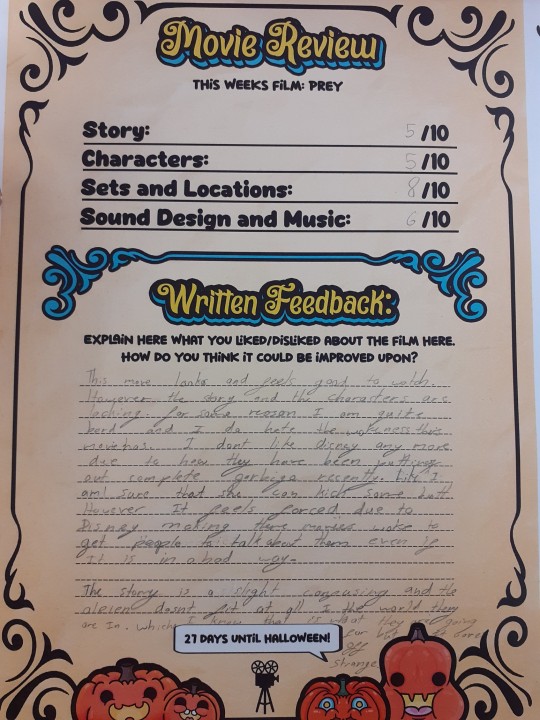 Movie Review
THIS WEEKS FILM: PREY
Story: 5/10
Characters: 5/10
Sets and Locations: 8/10
Sound Design and Music: 6/10
Written Feedback:
EXPLAIN HERE WHAT YOU LIKED/DISLIKED ABOUT THE FILM HERE.
HOW DO YOU THINK IT COULD BE IMPROVED UPON?
This move looks and feels good to watch.
However the story and the characters are
laching. for some reason I am quite
bord and I do hate the wokness this
movie has. I dont like disney any more
due to how they have been putting
out complete garbige recently. Like I
am sure that she can kick some butt
However It feels forced due to
Disney making there movies woke to
get people to talk about them even if
it is in a bad way.
The story is a slight confusing and the
alein dosnt fit at all I the world they
are In. which I know that is what they are going
for but
off
strange
27 DAYS UNTIL HALLOWEEN!